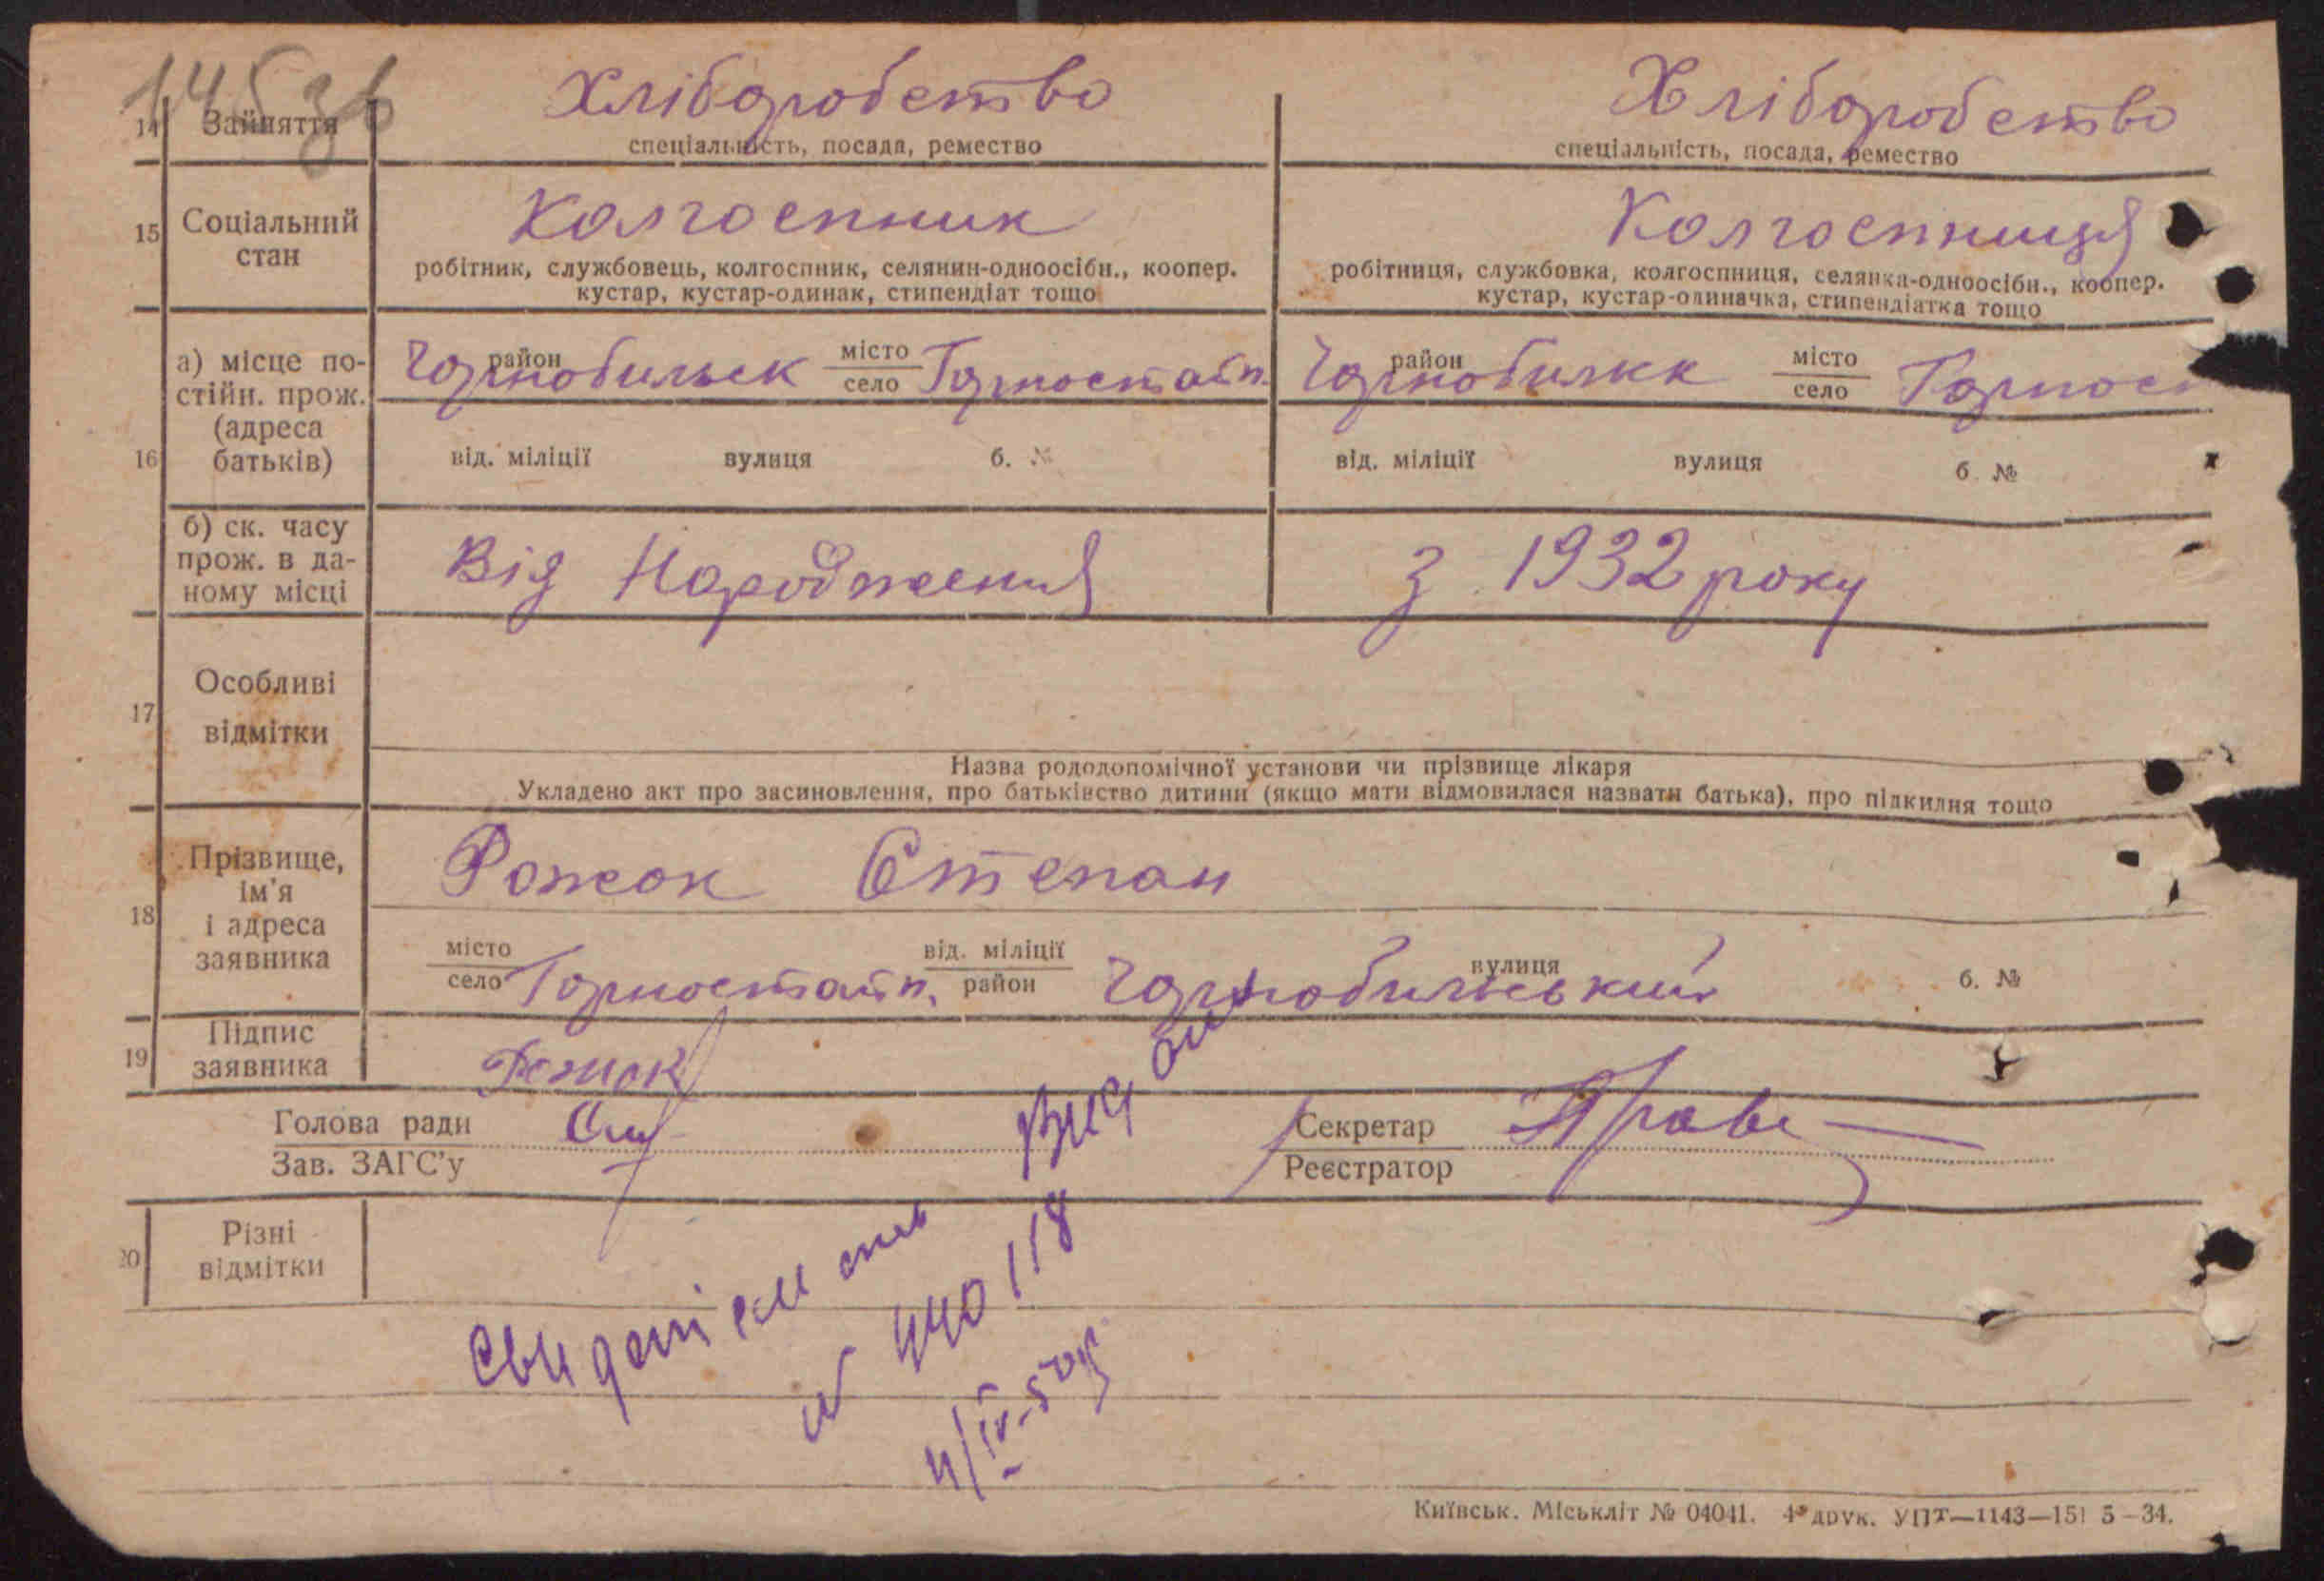 145зв
14 Зайняття Хліборобство Хліборобство
спеціальність, посада, ремество спеціальність, посада, ремество
15 Соціальний стан Колгоспник Колгоспниця
робітник, службовець, колгоспник, селянин-одноосібн., коопер. робітниця, службовка, колгоспниця, селянка-одноосібн., коопер.
кустар, кустар-одинак, стипендіат тощо кустар, кустар-одиначка, стипендіатка тощо
16 а) місце постійн. прож. (адреса батьків) район Чорнобильськ місто село Горностайп. район місто село Горнос
від. міліції вулиця б. № від. міліції вулиця б. №
б) ск. часу прож. в даному місці Від Народження з 1932 року
17 Особливі відмітки
Назва рододопомічної установи чи прізвище лікаря
Укладено акт про засиновлення, про батьківство дитини (якщо мати відмовилася назвати батька), про підкидня тощо
18 Прізвище, ім'я і адреса заявника Рожок Степан
місто село Горностайп. від. міліції район Чорнобильський вулиця б. №
19 Підпис заявника Рожок
Голова ради Зав. ЗАГС'у Секретар Реєстратор
20 Різні відмітки
№ 440118
4/IV-50р
Київськ. Міськліт № 04041. 4 друк. УПТ—1143—151 5-34.